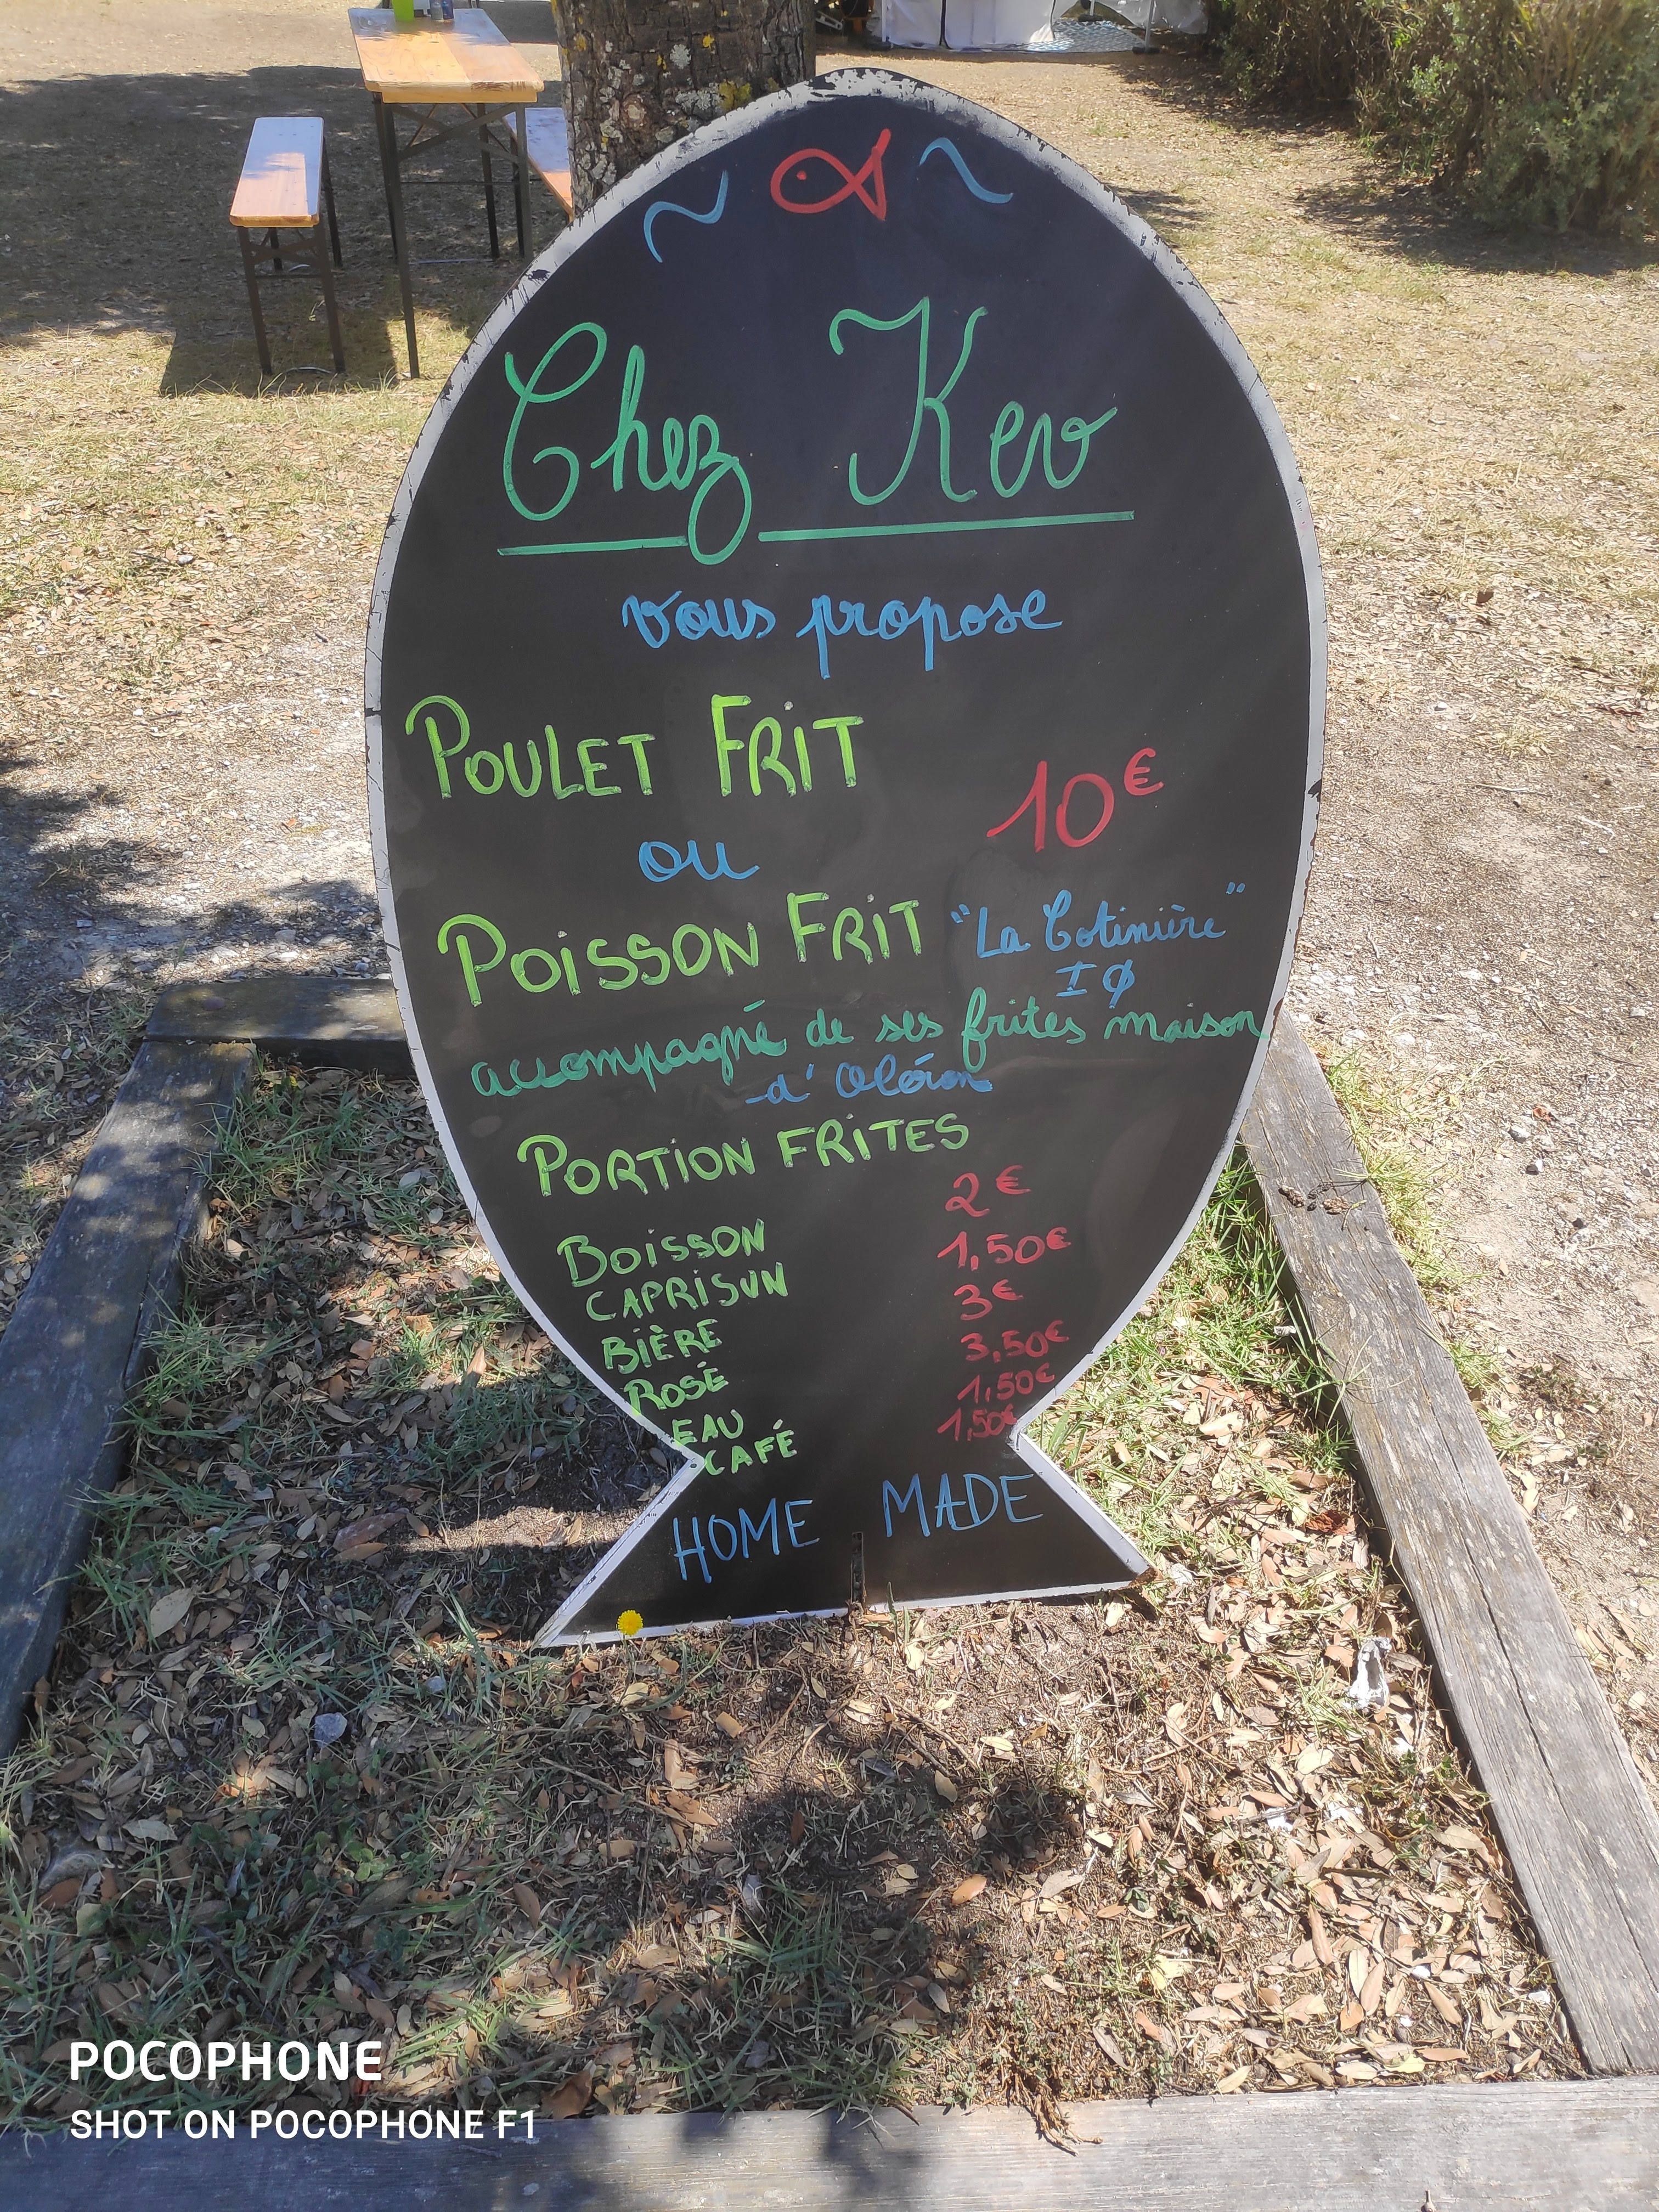 Chez Kev
vous propose
POULET FRIT
10€
ou
POISSON FRIT "La Cotinière"
IO
accompagné de ses frites maison
d'Oléron
PORTION FRITES
2€
BOISSON 1,50€
CAPRISUN 3€
BIÈRE 3,50€
ROSÉ 1,50€
EAU 1,50€
CAFÉ
HOME MADE
POCOPHONE
SHOT ON POCOPHONE F1